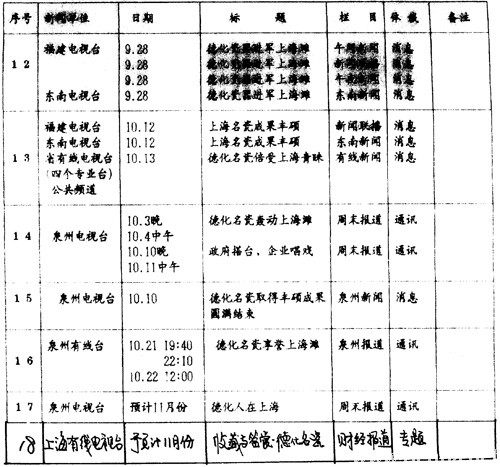 序号 新闻单位 日期 标题 栏目 体裁 备注
12 福建电视台 9.28 德化瓷器进军上海滩 午间新闻 消息
9.28 德化瓷器进军上海滩 新闻联播 消息
9.28 德化瓷器进军上海滩 午夜新闻 消息
东南电视台 9.28 德化瓷器进军上海滩 东南新闻 消息
13 福建电视台 10.12 上海名瓷成果丰硕 新闻联播 消息
东南电视台 10.12 上海名瓷成果丰硕 东南新闻 消息
省有线电视台 10.13 德化名瓷倍受上海青睐 有线新闻 消息
(四个专业台)
公共频道
14 泉州电视台 10.3晚 德化名瓷轰动上海滩 周末报道 通讯
10.4中午
10.10晚 政府搭台、企业唱戏 周末报道 通讯
10.11中午
15 泉州电视台 10.10 德化名瓷取得丰硕成果 泉州新闻 消息
圆满结束
16 泉州有线台 10.21 19:40 德化名瓷享誉上海滩 泉州报道 通讯
22:10
10.22 12:00
17 泉州电视台 预计11月份 德化人在上海 周末报道 通讯
18 上海有线电视台 预计11月份 收藏与鉴赏·德化名瓷 财经报道 专题